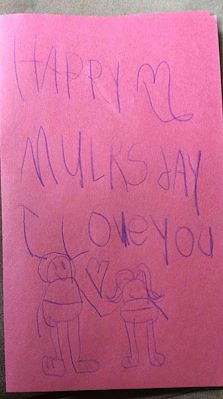 HAPPY
MULRS dAY
I Love you